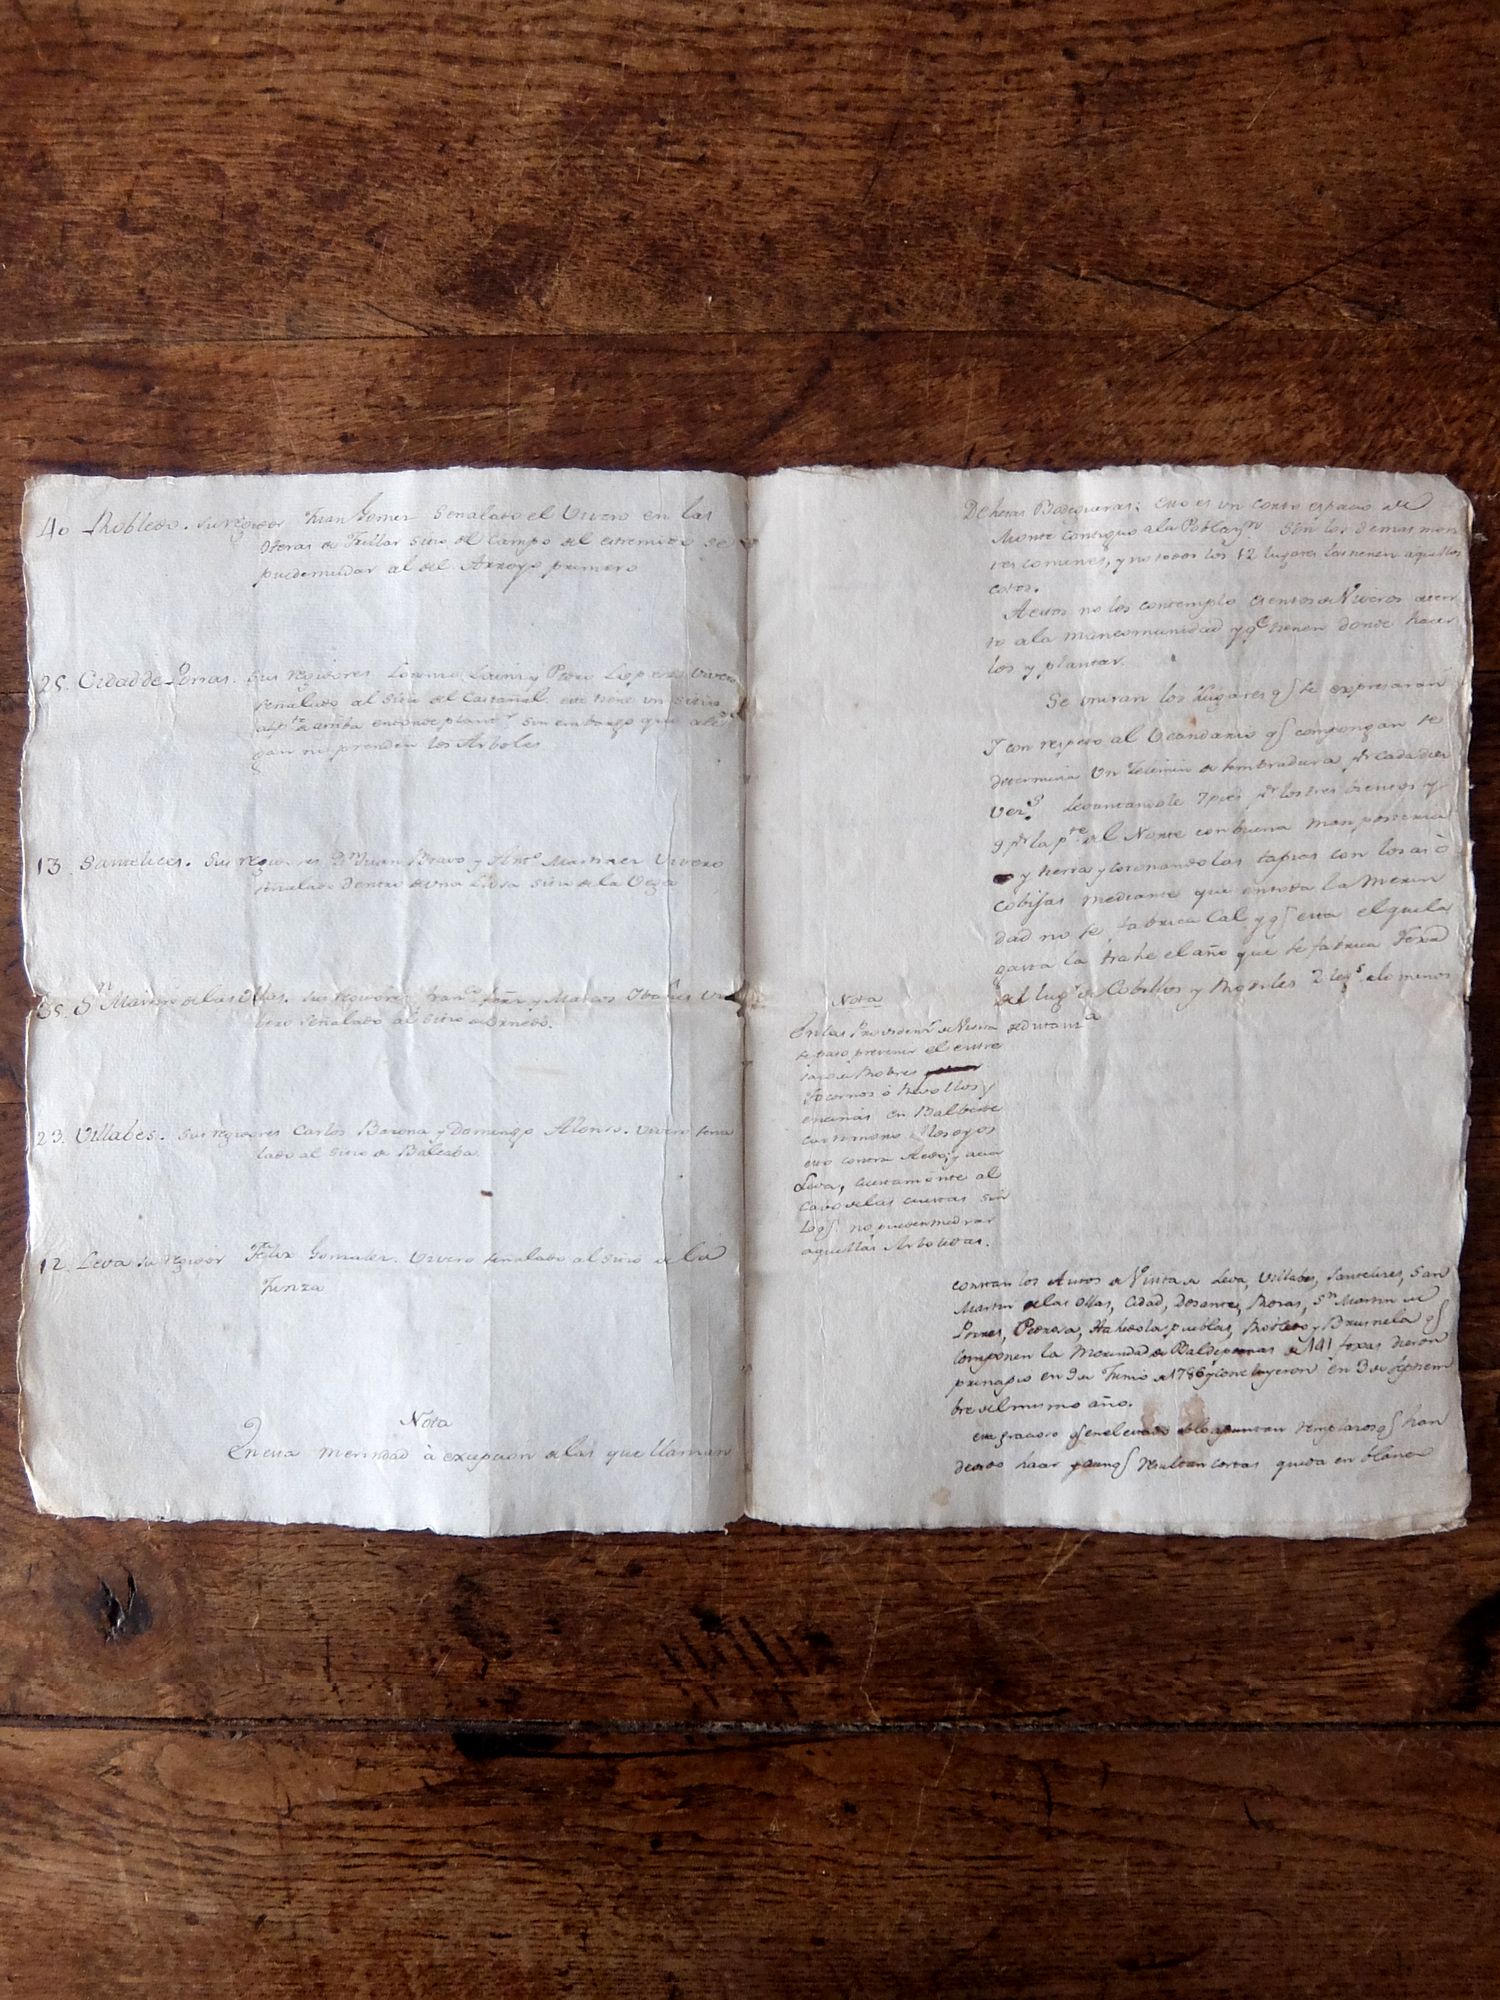 40 Robledo. su regidor Juan Gomez señalado el Vivero en las
oteras de Trillar sitio del Campo del estremido se
puedemudar al del Arroyo primero
25. Cidadde Porras. sus regidores Lorenzo Sainz y Pedro Lopez Vivero
señalado al sitio del Castañal. este tiene un sitio
arriba entonde plant.r sin embargo que ale
gan no prenden los Arboles
13 Santelices. sus regidores D.n Juan Bravo y Ant.o Martinez Vivero
señalado dentro de una Llosa sitio de la Vega
35. S.n Martin de las Ollas. sus regidores Fran.co y Marcos Ybañes Vi
vero señalado al sitio de
23. Villabes. sus regidores Carlos Barona y Domingo Alonso. Vivero seña
lado al sitio de
12. Leva su regidor Felix Gonzalez. Vivero señalado al sitio de la
Nota
En esta merindad à excepcion de las que llaman
Dehesas Bodegueras; Esto es un corto espacio de
Monte contiguo a la Poblaz.on son los demas mon
tes comunes, y no todos los 12 lugares los tienen aquellos
cotos.
A estos no los contemplo esentos de Viveros aten
to a la mancomunidad y q.e tienen donde hacer
los y plantar.
Se uniran los Lugares q.e se expresarán
Y con respeto al Vecindario q.e compongan se
determina un Zelemin de sembradura p.r cada diez
Vez.s Levantandole 7 pies p.r los tres bientos y
9 p.r la p.te del Norte con buena manposteria
y tierra y coronando las tapias con losas ò
cobijas mediante que en toda la Merin
dad no se fabrica Cal y q.e esta el que la
gasta la trahe el año que se fabrica
del lug.r de Cubillos y Robles 2 leg.s a lo menos
de distanz.a
Nota
En las Providenz.s de Visita
se puso prevenir el entre
saco de Robres
Tocornos ò Revollos y
encinas en
esto contra Aedo; y acia
Leva, ciertamente al
cavo de las cuestas sin
lo q.e no pueden medrar
aquellas Arboledas.
constan los Autos de Visita de Leva, Villabes, Santelices, San
Martin de las Ollas, Cidad, Dosante, Rozas, S.n Martin de
Porres, Pedrosa, Ahedo las pueblas, Robledo y Brizuela q.e
componen la Merindad de Baldeporras de 141 foxas dieron
principio en 9 de Junio de 1786 y concluyeron en 3 de septiem
bre del mismo año.
q.e han
devido hacer y aunq.e resultan cortas queda en blanco